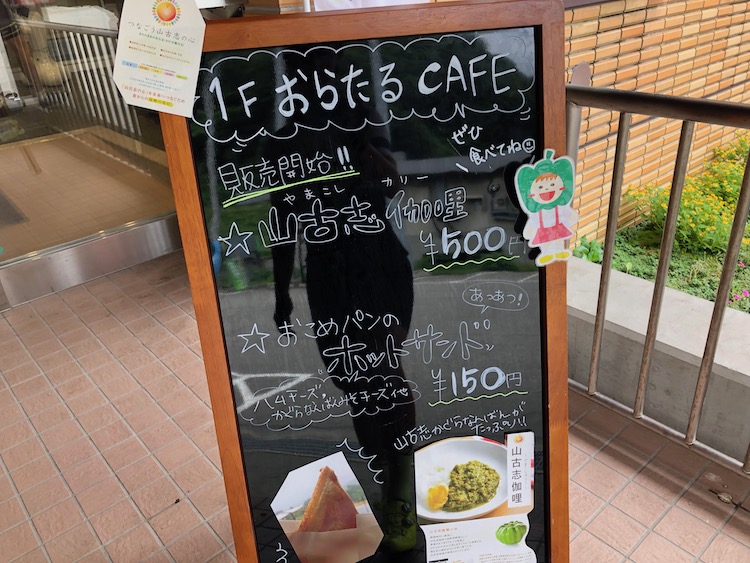 つなごう山古志の心
1F おらたる CAFE
ぜひ
食べてね
販売開始!!
やまこし カリー
☆山古志 伽哩
¥500円
あつあつ!
☆おこめパンの
ホットサンド
¥150円
ハムチーズ・
かぐらなんばんみそチーズ他
山古志かぐらなんばんが
たっぷり!!
山古志伽哩